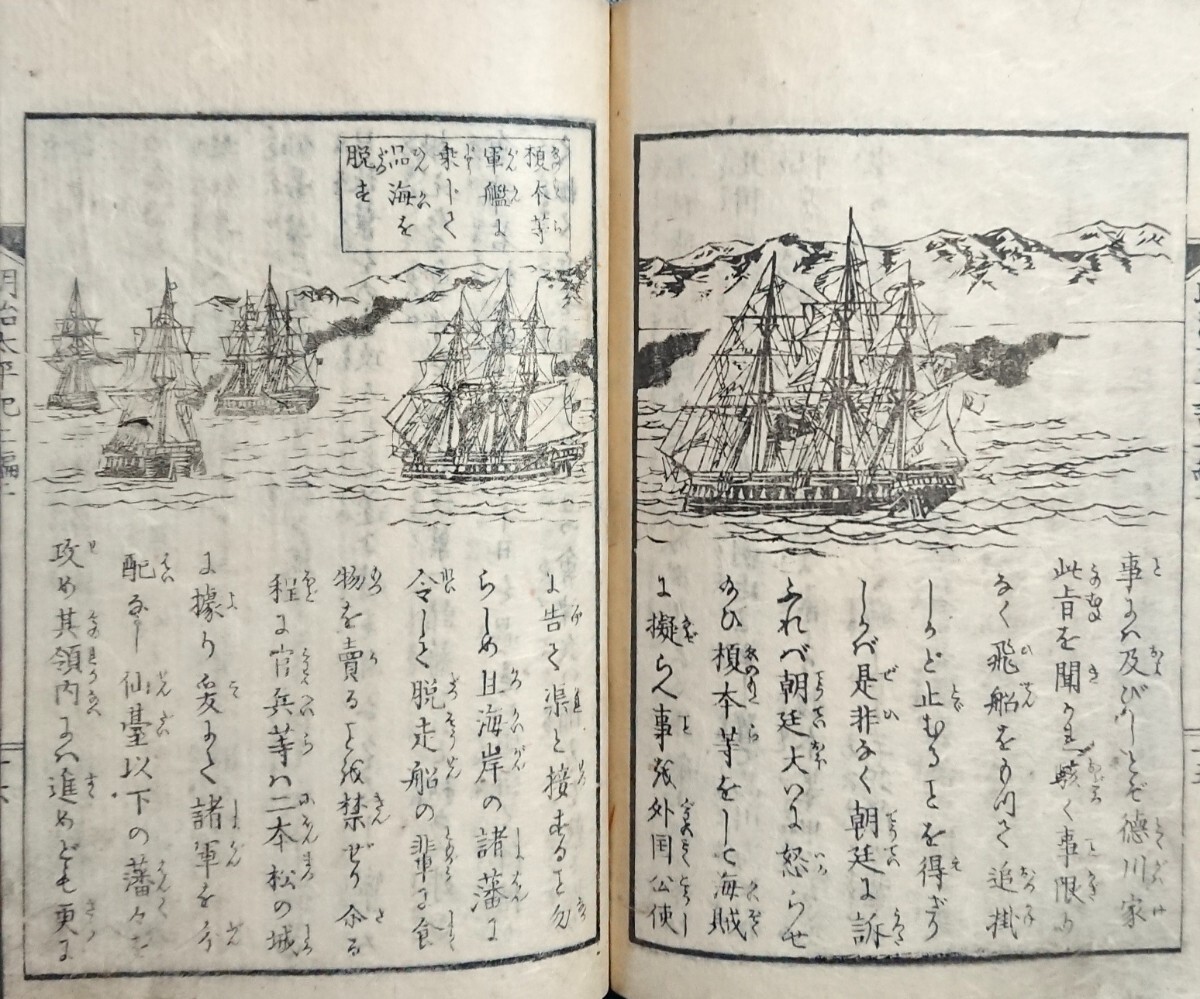 事に及びしとぞ徳川家
此旨を聞かれ駭く事限り
なく飛船をもつて追掛
しかど止むることを得ざり
しかバ是非なく朝廷に訴
ふれバ朝廷大いに怒らせ
給ひ榎本等をして海賊
に擬らへ事を外国公使
榎本等
軍艦に
乗じて
品海を
脱走
に告て渠と接することを勿
らしめ且海岸の諸藩に
令して脱走船の輩に食
物を賣ることを禁ぜり余る
程に官兵等ハ二本松の城
に據り爰にて諸軍を
配なし仙臺以下の藩々を
攻め其領内にハ進めども更に
明治太平記